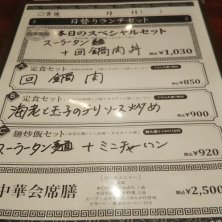 日替りランチセット
本日のスペシャルセット
スーラータン麺
+回鍋肉丼
¥1,030
定食セット
回鍋肉
¥850
定食セット
海老と玉子のチリソース炒め
¥900
麺炒飯セット
スーラータン麺+ミニチャーハン
¥920
中華会席膳
¥2,500